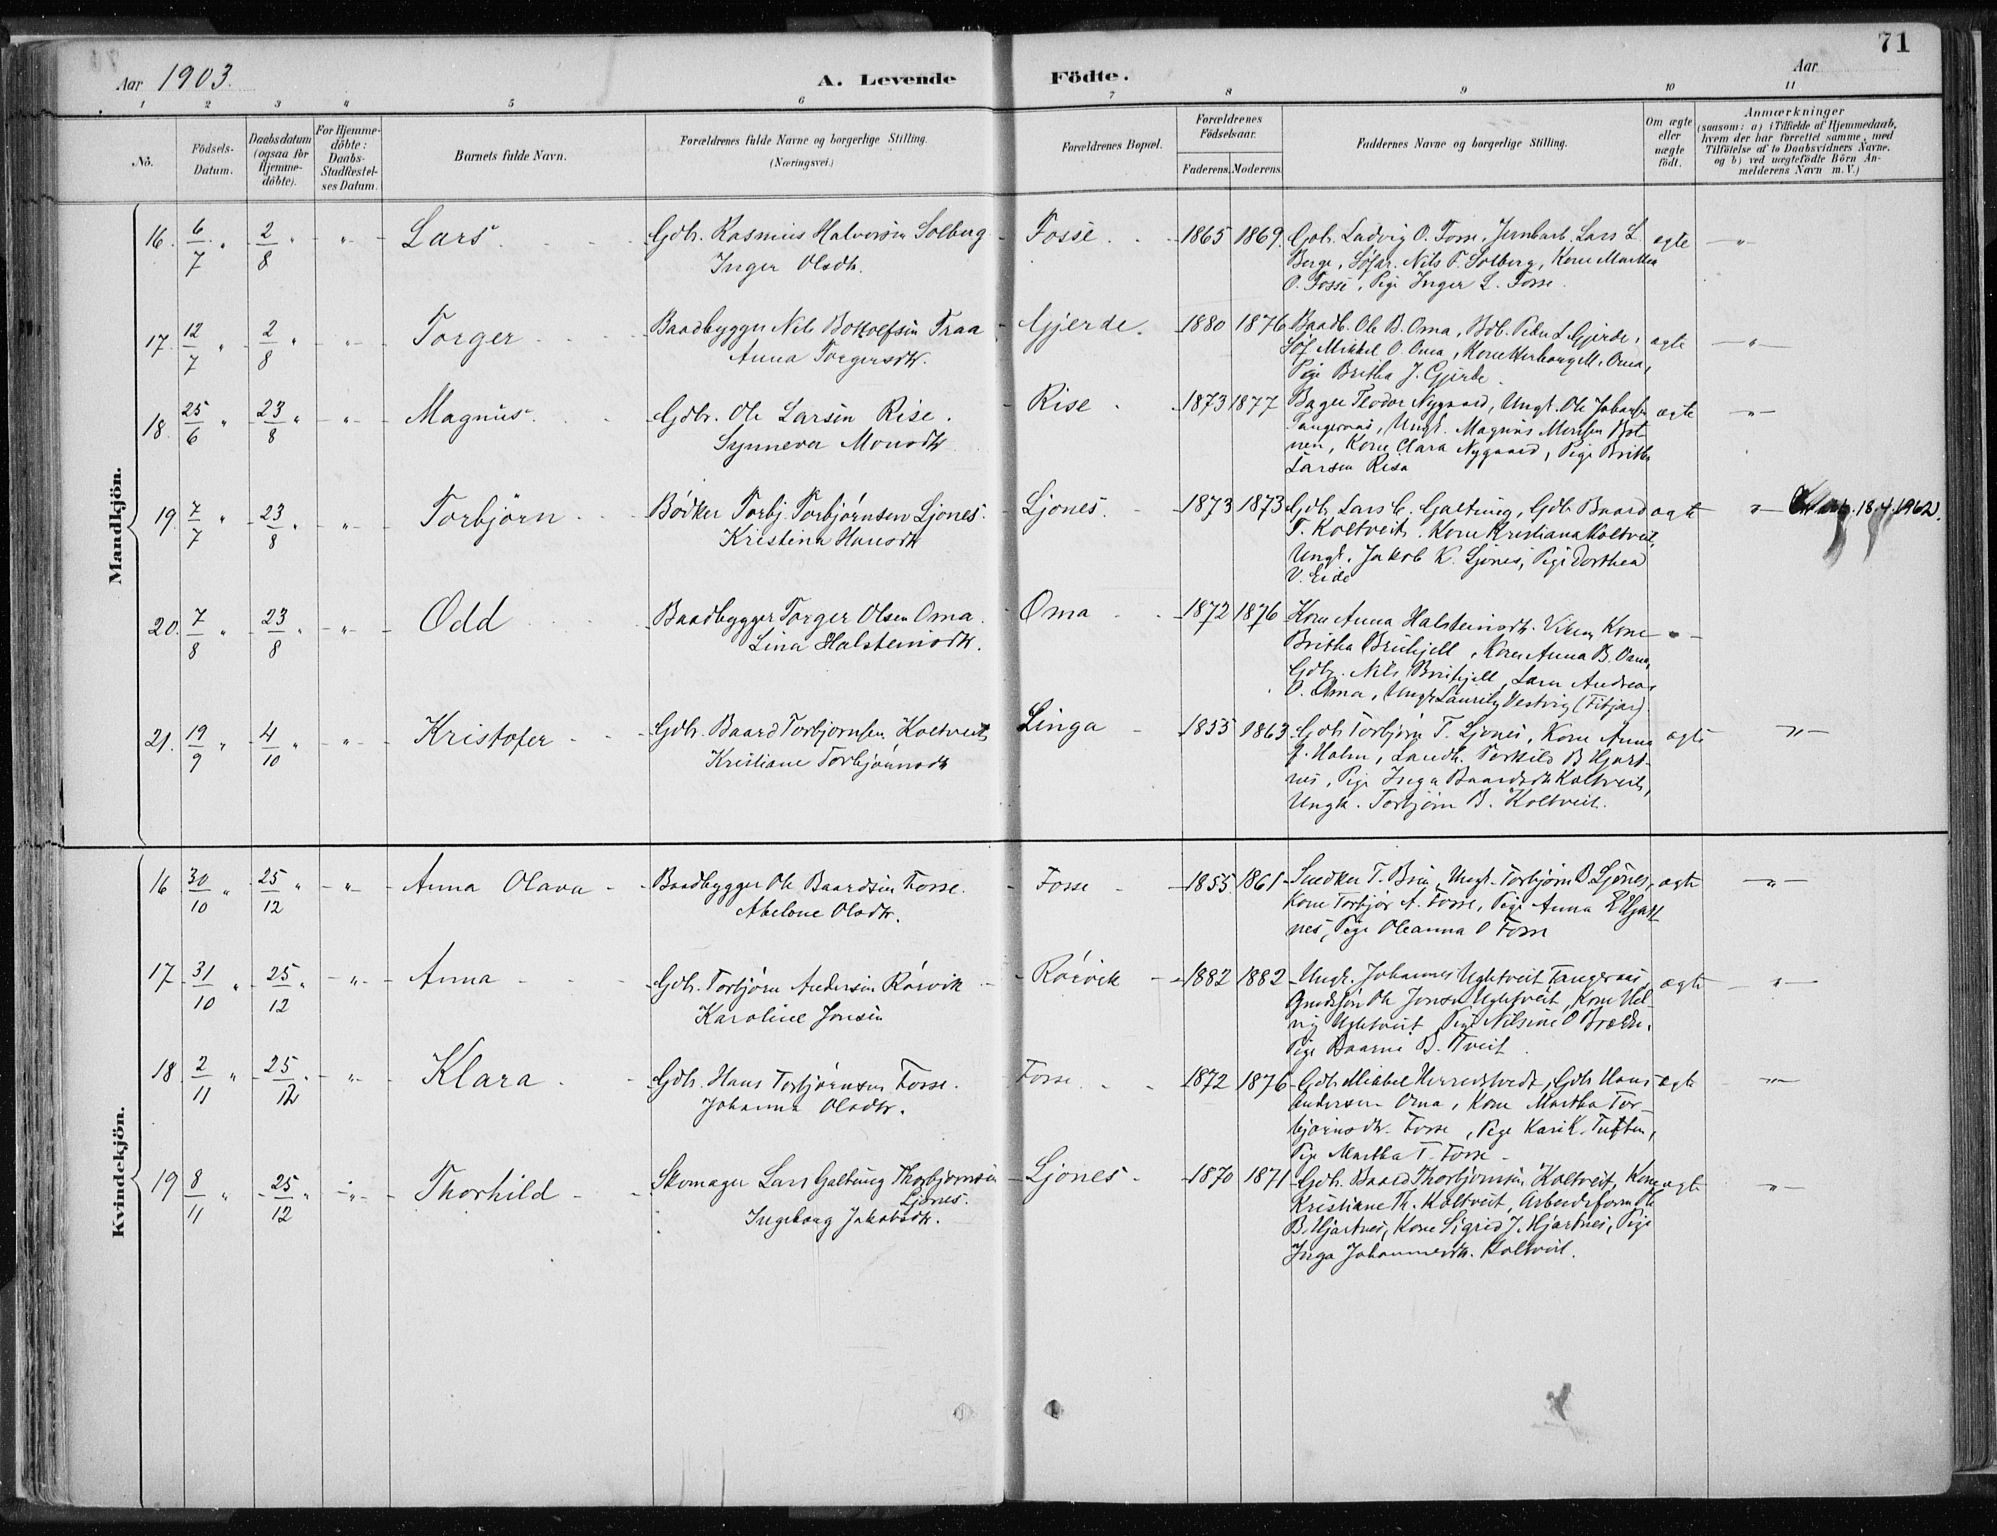 71
Aar 1903. A. Levende Födte. Aar
1 2 3 4 5 6 7 8 9 10 11
No.
Födsels-Datum.
Daabsdatum (ogsaa for Hjemme-döbte).
For Hjemme-döbte: Daabs-Stadfæstel-ses Datum.
Barnets fulde Navn.
Forældrenes fulde Navne og borgerlige Stilling. (Næringsvei.)
Forældrenes Bopæl.
Forældrenes Födselsaar.
Faderens. Moderens.
Faddernes Navne og borgerlige Stilling.
Om ægte eller uægte födt.
Anmærkninger
(saasom: a) i Tilfælde af Hjemmedaab,
hvem der har forrettet samme, med
Tilföielse af to Daabsvidners Navne.
og b) ved uægtefödte Börn An-
melderens Navn m. V.)
Mandkjön.
16. 6/7 " 2/8 " - " - Lars Gdbr. Rasmus Halvorsen Solberg Fosse. 1865 1869. Gdbr. Ludvig O. Fosse, Jernbarb. Lars L. ægte - " -
Inger Olsdtr. Berge, Nils T. Solberg, Kone Martha
O. Fosse, Pige Inger L. Fosse.
17. 12/7 " 2/8 " - " - Torger Baadbygger Nils Botolfsen Traa Gjerde. 1880 1876 Baadb. Ole B. Oma, Bdb. Peder L. Gjerde, ægte - " -
Anna Torgersdtr. Mikkel O. Oma, Kone Herborg M. Oma,
Pige Britha J. Gjerde.
18. 25/6 " 23/8 " - " - Magnus Gdbr. Ole Larsen Rise. Rise 1873 1877 Bager Teodor Nygaard, Ungk. Ole Johansen ægte - " -
Synneva Monsdtr. Tangeraas, Ungk. Magnus Monsen Bot-
nen, Kone Clara Nygaard, Pige Britha
Larsen Risa
19. 7/7 " 23/8 " - " - Torbjørn Bödker Torbj. Torbjørnsen Ljones. Ljones. 1873 1873 Gdbr. Lars C. Galtung, Gdb. Baard ægte - " - 18.4.1962.
Kristena Hansdtr T. Koltveit, Kone Kristiana Koltveit,
Ungk. Jakob K. Ljones, Pige Dorthea
V. Eide
20. 7/8 " 23/8 " - " - Odd Baadbygger Torger Olsen Oma. Oma 1872 1876 Kone Anna Halsteinsdtr. Viken, Kone - " -
Lina Halsteinsdtr. Britha , Kone Anna B. Oma,
Gdbr. Nils , Lars Andreas
O. Oma, Ungk. Lauritz Vestvig (Fitjar).
21. 19/9 " 4/10 " - " - Kristofer Gdbr. Baard Torbjørnsen Koltveit Linga 1855 1863 Gdbr. Torbjørn T. Ljones, Kone Anna ægte - " -
Kristiane Torbjørnsdtr J. Holm, Landh. Torkild B. Hjart-
nes, Pige Inga Baardsdtr Koltveit,
Ungk. Torbjørn B. Koltveit.
Kvindekjön.
16 30/10 " 25/12 " - " - Anna Olava Baadbygger Ole Baardsen Fosse. Fosse 1855 1861 Snedker T. Bru, Ungk. Torbjørn B. Ljones, ægte - " -
Abelone Olsdtr. Kone Torbjør A. Fosse, Pige Anna E. Hjart-
nes, Pige Oleanna O Fosse
17 31/10 " 25/12 " - " - Anna Gdbr. Torbjørn Andersen Røirvik Røirvik 1882 1882 Ungk. Johannes Ughtveit Tangeraas, ægte - " -
Karoline Jonsen Ole Jonsen Ughtveit, Kone Hel-
vig Ughtveit, Pige Nilsine O Brække.
Pige Baarni B. Tveit.
18 2/11 " 25/12 " - " - Klara Gdbr. Hans Torbjørnsen Fosse. Fosse. 1872 1876 Gdb. Mikkel Herredstvedt, Gdb. Hans ægte - " -
Johanna Olsdtr. Andersen Oma, Kone Martha Tor-
bjørnsdtr. Fosse, Pige Kari K. Tuften,
Pige Martha T. Fosse
19 8/11 " 25/12 " - " - Thorhild Skomager Lars Galtung Thorbjørnsen Ljones. 1870 1871 Gdb. Baard Thorbjørnsen Koltveit, Kone ægte - " -
Ljones. Kristiane Th. Koltveit, Arbeidsform. Ole
Ingeborg Jakobsdtr. B. Hjartnes, Kone Sigrid J. Hjartnes, Pige
Inga Johannesdtr. Koltveit.